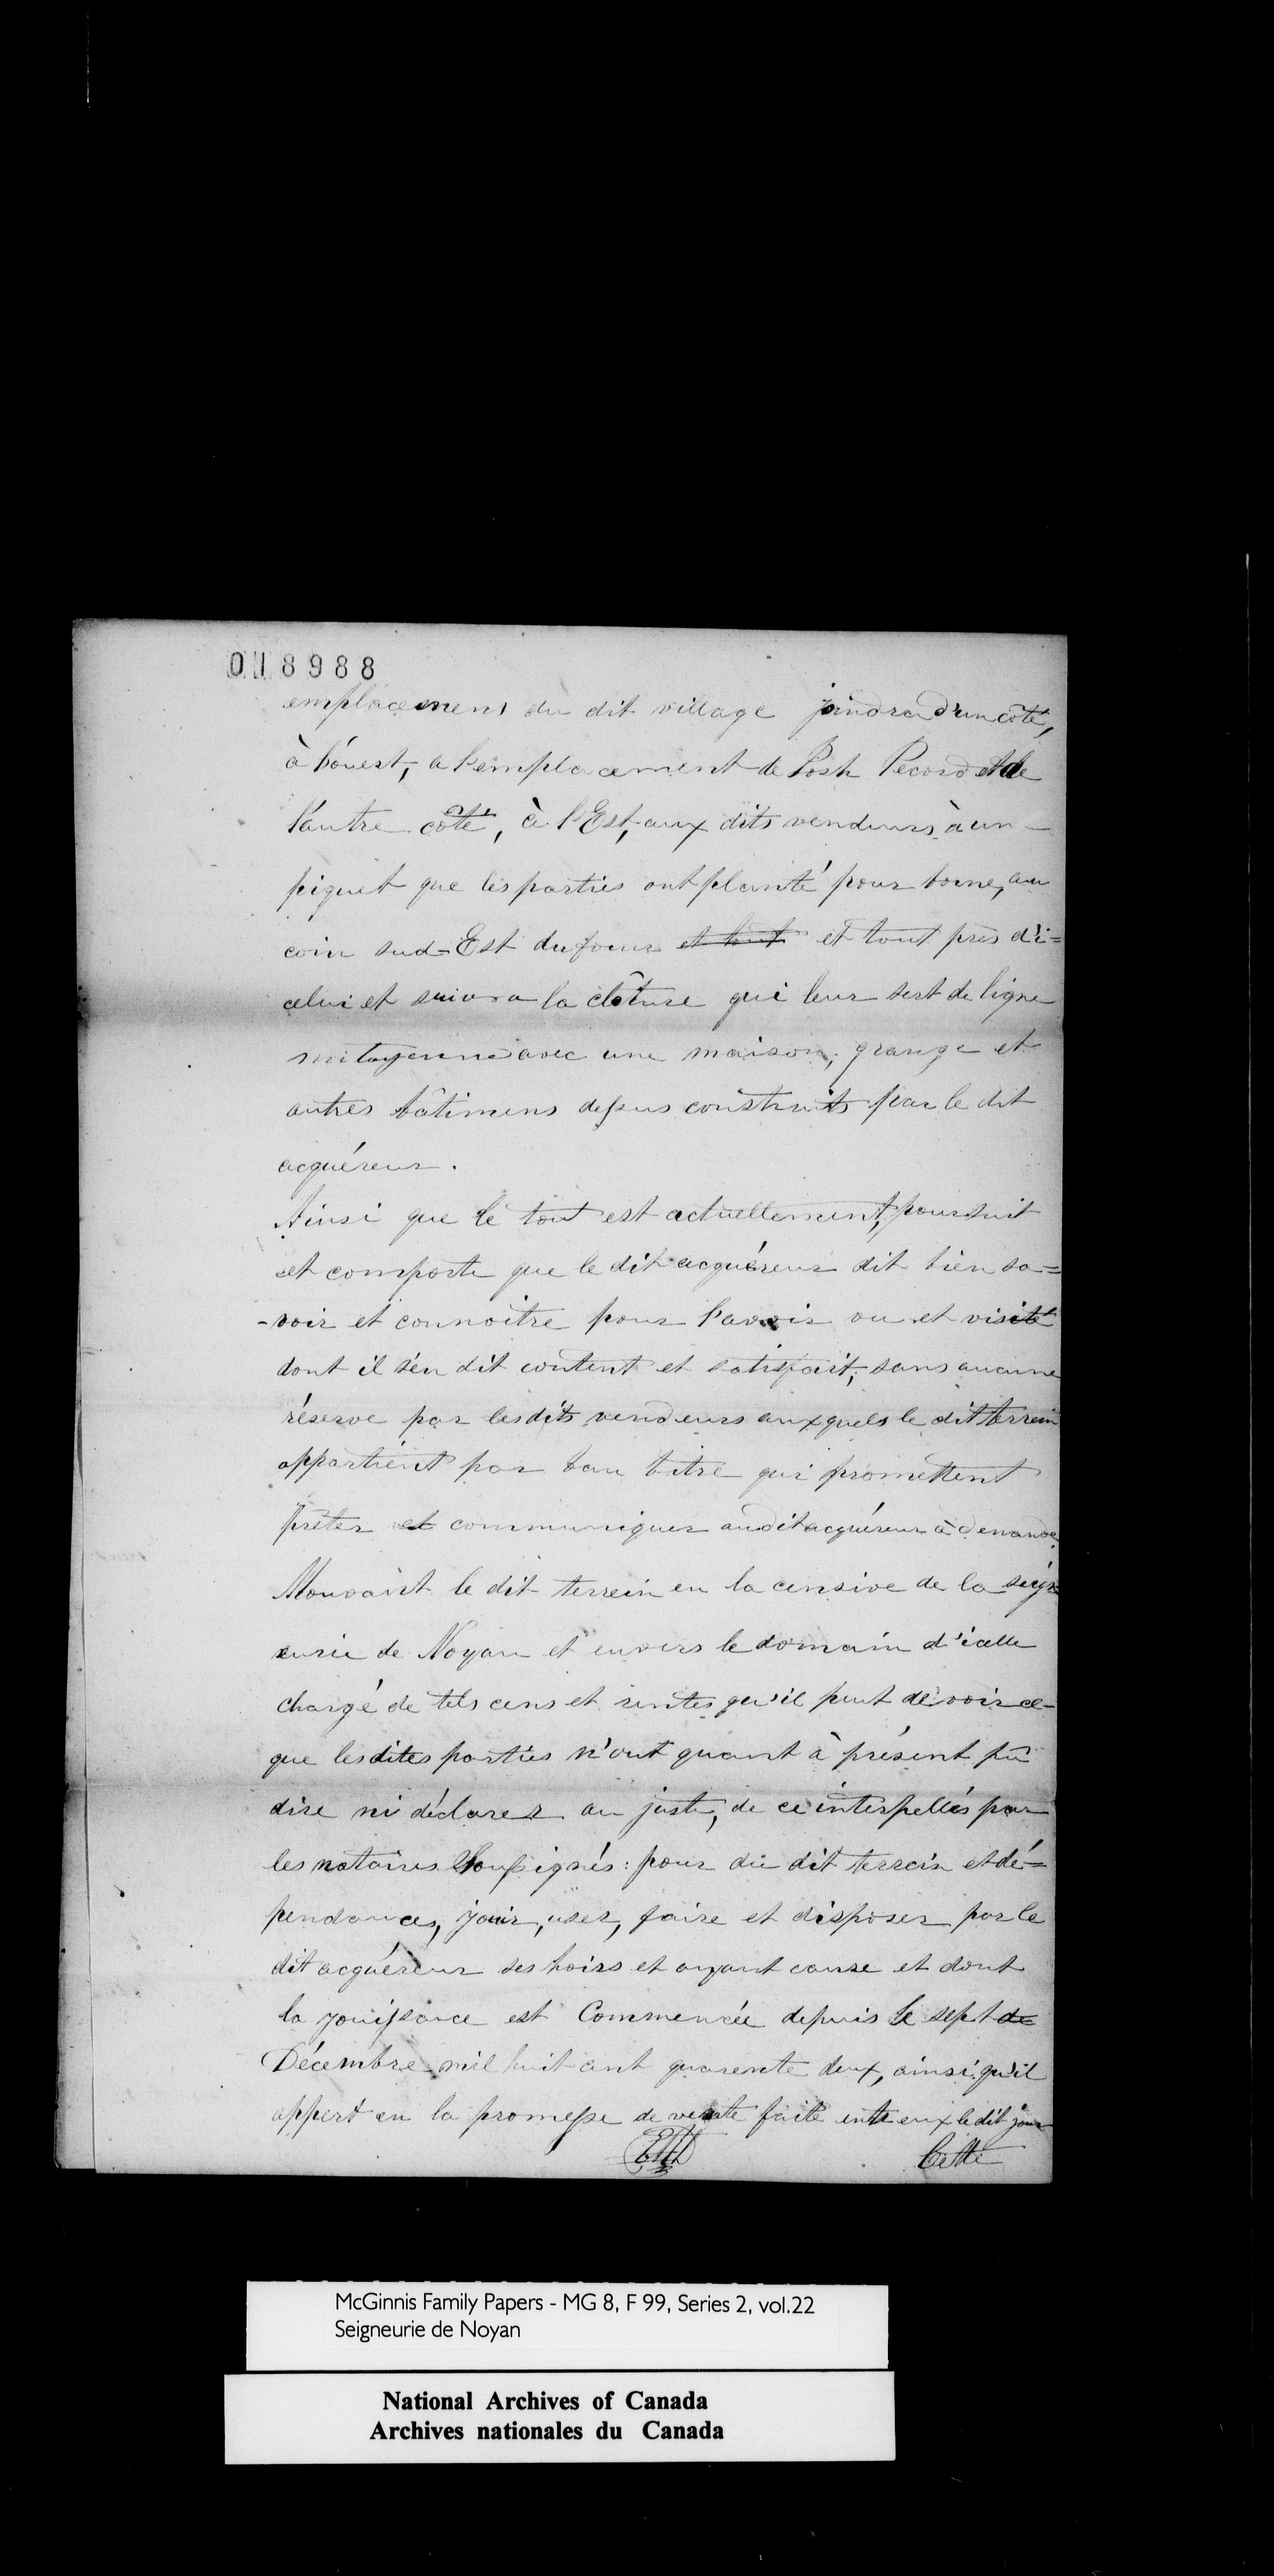 018988
emplacemens du dit village joindra d'un côté,
à l'ouest, a l'emplacement de Posh Record et de
l'autre côté, à l'Est, aux dits vendeurs, à un
piquet que les parties ont planté pour borne, au
coin sud-Est du four et tout et tout près d'i=
celui et suivra la clôture qui leur sert de ligne
mitoyenne avec une maison, grange et
autres bâtimens dessus construits par le dit
acquéreur.
Ainsi que le tout est actuellement, poursuit
et comporte que le dit acquéreur dit bien sa=
-voir et connoitre pour l'avoir vu et visité
dont il s'en dit content et satisfait, sans aucune
réserve par lesdits vendeurs auxquels le dit terrein
appartient par bon titre qui promettent
prêter et communiquer audit acquéreur à demande
Mouvant le dit terrein en la censive de la seign
eurie de Noyan et envers le domain d'icelle
chargé de tels cens et rentes qu'il peut devoir ce-
que lesdites parties n'ont quant à présent pû
dire ni déclarer au juste, de ce interpellés par
les notaires Soussignés: pour du dit terrein et dé=
pendances, jouir, user, faire et disposer par le
dit acquéreur ses hoirs et ayant cause et dont
la jouissance est Commencée depuis le sept de
Décembre mil huit cent quarente deux, ainsi qu'il
appert en la promesse de vente faite entr'eux le dit jour
Cette
McGinnis Family Papers - MG 8, F 99, Series 2, vol.22
Seigneurie de Noyan
National Archives of Canada
Archives nationales du Canada